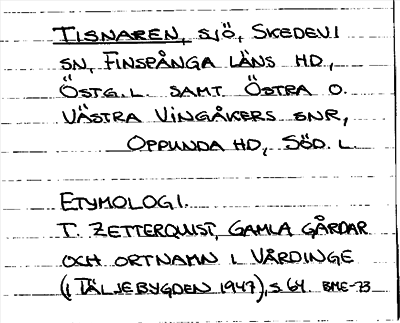 TISNAREN, SJÖ, SKEDEVI
SN, FINSPÅNGA LÄNS HD,
ÖSTG. L. SAMT ÖSTRA O.
VÄSTRA VINGÅKERS SNR,
OPPUNDA HD, SÖD. L.
ETYMOLOGI.
T. ZETTERQUIST, GAMLA GÅRDAR
OCH ORTNAMN I VÅRDINGE
(I TÄLJEBYGDEN 1947), S 64. BME-73